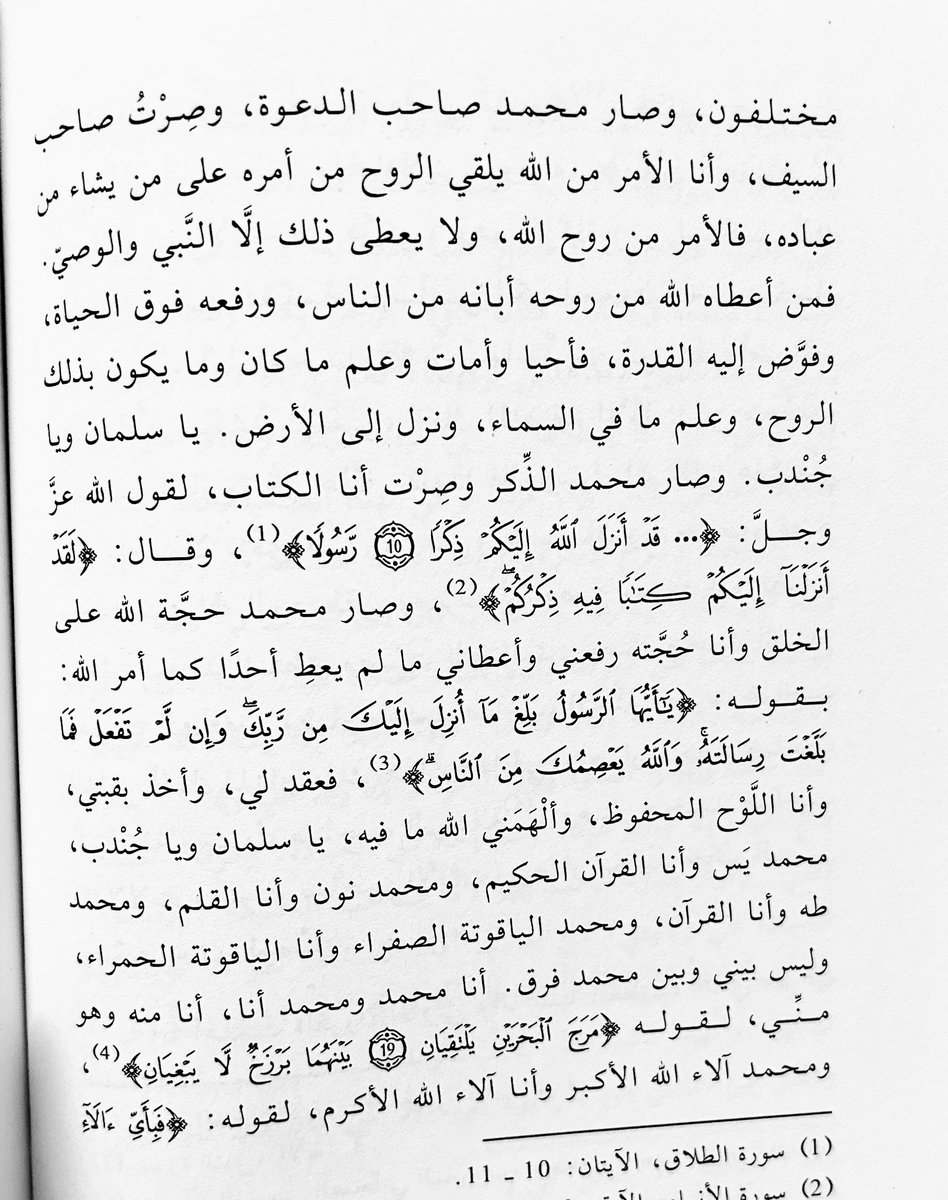 مختلفون، وصار محمد صاحب الدعوة، وصِرْتُ صاحب
السيف، وأنا الأمر من الله يلقي الروح من أمره على من يشاء من
عباده، فالأمر من روح الله، ولا يعطى ذلك إلَّا النَّبي والوصيّ.
فمن أعطاه الله من روحه أبانه من الناس، ورفعه فوق الحياة،
وفوَّض إليه القدرة، فأحيا وأمات وعلم ما كان وما يكون بذلك
الروح، وعلم ما في السماء، ونزل إلى الأرض. يا سلمان ويا
جُنْدب. وصار محمد الذِّكر وصِرْت أنا الكتاب، لقول الله عزَّ
وجلَّ: ﴿... قَدْ أَنزَلَ ٱللَّهُ إِلَيْكُمْ ذِكْرًا 10 رَّسُولًا﴾(1)، وقال: ﴿لَقَدْ
أَنزَلْنَآ إِلَيْكُمْ كِتَٰبًا فِيهِ ذِكْرُكُمْۖ﴾(2)، وصار محمد حجَّة الله على
الخلق وأنا حُجَّته رفعني وأعطاني ما لم يعطِ أحدًا كما أمر الله:
بقوله: ﴿يَٰٓأَيُّهَا ٱلرَّسُولُ بَلِّغْ مَآ أُنزِلَ إِلَيْكَ مِن رَّبِّكَۖ وَإِن لَّمْ تَفْعَلْ فَمَا
بَلَّغْتَ رِسَالَتَهُۥۚ وَٱللَّهُ يَعْصِمُكَ مِنَ ٱلنَّاسِۗ﴾(3)، فعقد لي، وأخذ بقبتي،
وأنا اللَّوْح المحفوظ، وألْهَمَني الله ما فيه، يا سلمان ويا جُنْدب،
محمد يَس وأنا القرآن الحكيم، ومحمد نون وأنا القلم، ومحمد
طه وأنا القرآن، ومحمد الياقوتة الصفراء وأنا الياقوتة الحمراء،
وليس بيني وبين محمد فرق. أنا محمد ومحمد أنا، أنا منه وهو
منِّي، لقوله ﴿مَرَجَ ٱلْبَحْرَيْنِ يَلْتَقِيَانِ 19 بَيْنَهُمَا بَرْزَخٌ لَّا يَبْغِيَانِ﴾(4)،
ومحمد آلاء الله الأكبر وأنا آلاء الله الأكرم، لقوله: ﴿فَبِأَيِّ ءَالَآءِ
(1) سورة الطلاق، الآيتان: 10 ـ 11.
(2) سورة